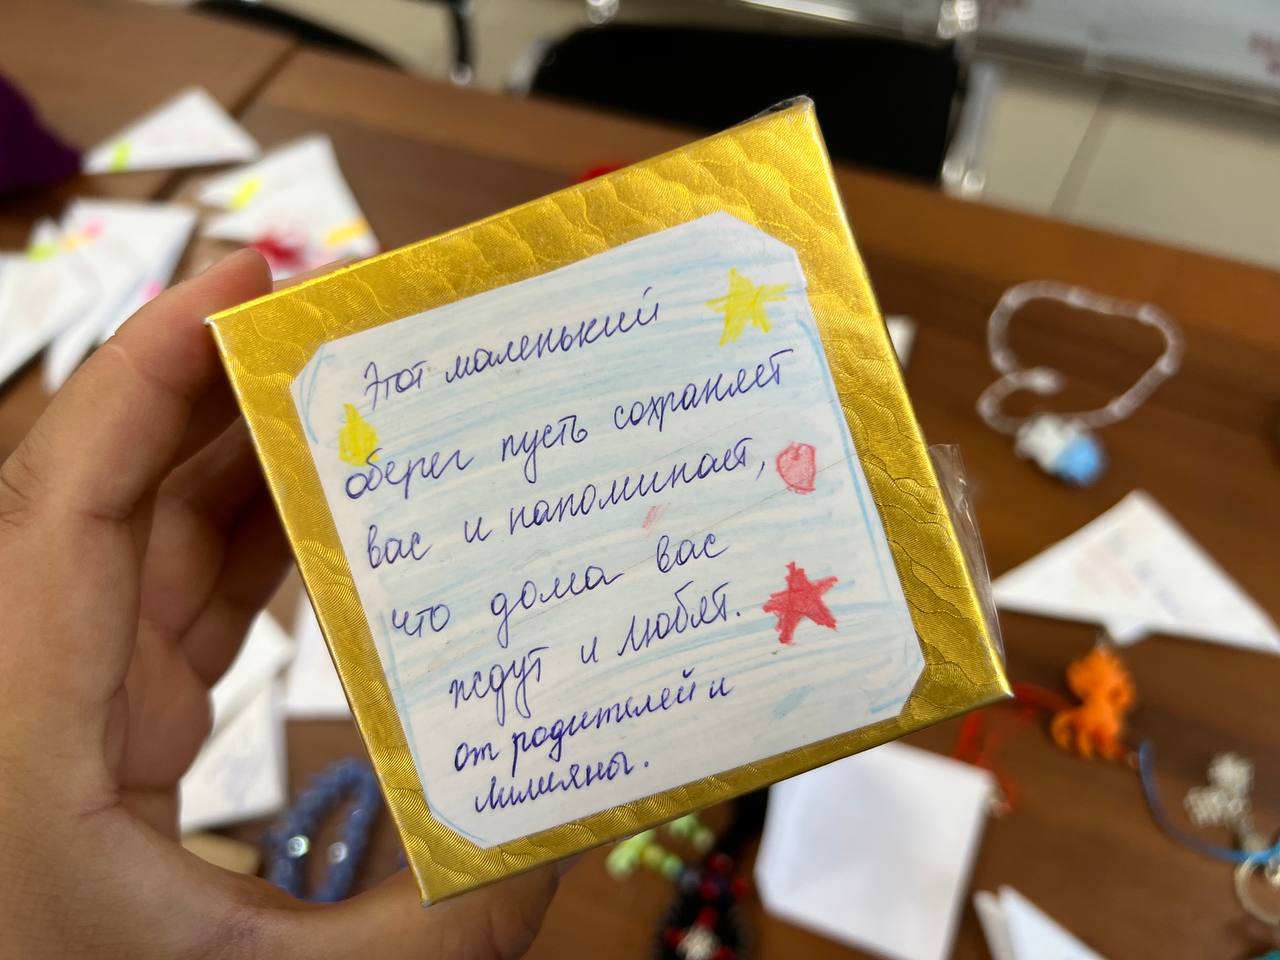 Этот маленький
оберег пусть сохраняет
вас и напоминает,
что дома вас
ждут и любят.
от родителей и
Лилияны.